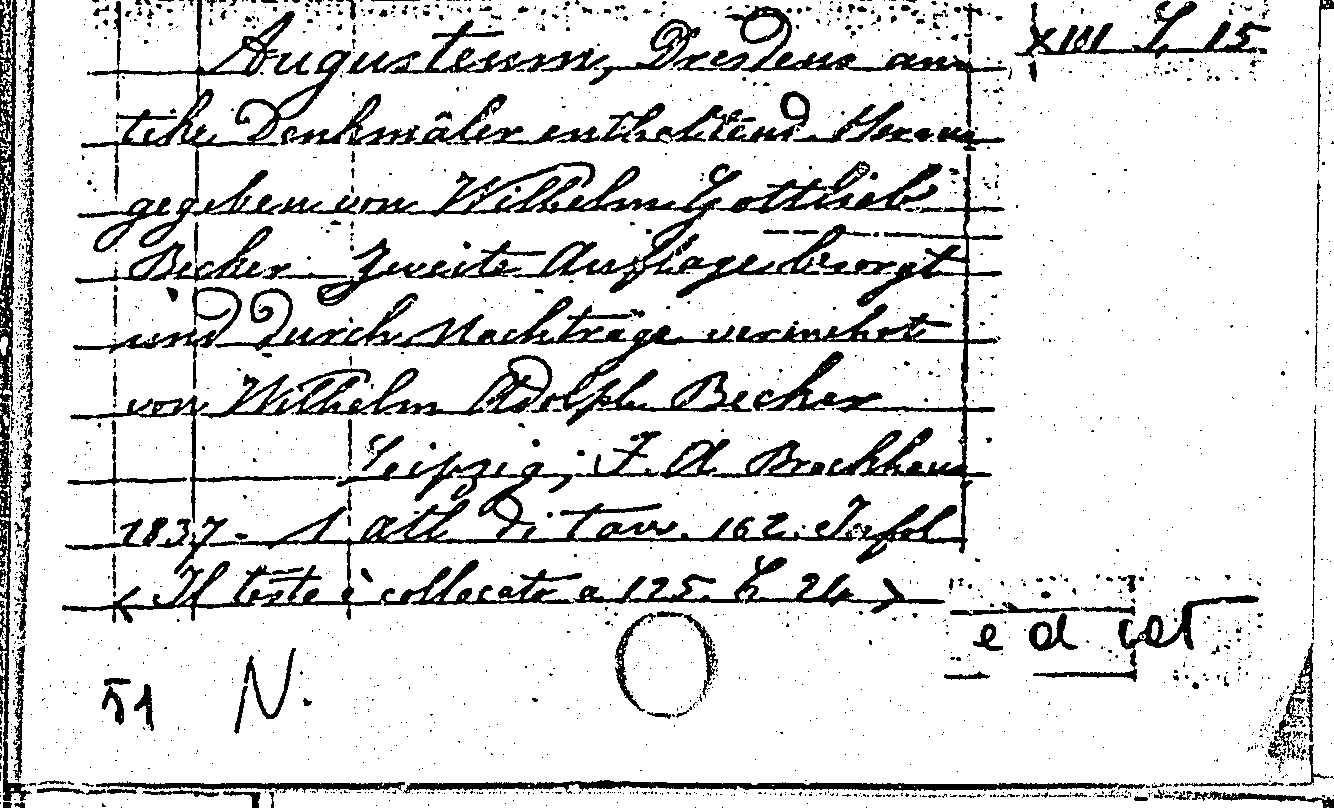 Augusteum, Dresdens an- XIII L 15
tike Denkmäler enthaltend. Heraus
gegeben von Wilhelm Gottlieb
Becker. Zweite Auflage besorgt
und durch Nachträge vermehrt
von Wilhelm Adolph Becker
Leipzig, F. A. Brockhaus
1837. 1 atl. di tav. 162. Infol
< Il testo è collocato a 125. L 24 >
e d cat
51 N.